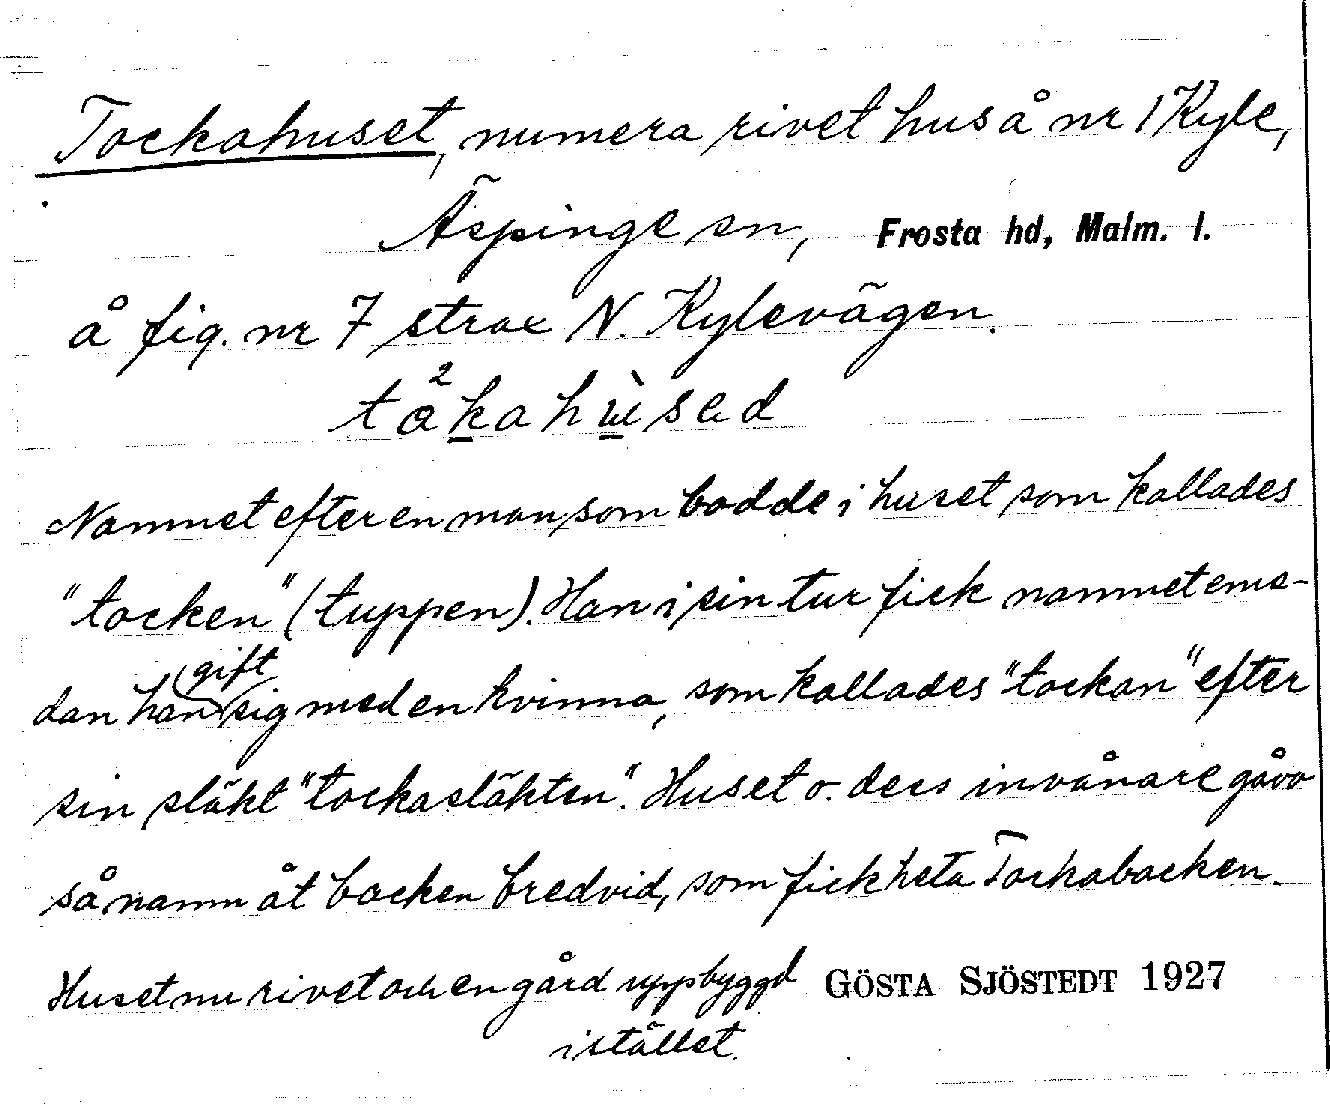 Tockahuset, numera rivet hus å nr 1 Kyle,
Äspinge sn, Frosta hd, Malm. l.
å fig. nr 7 strax N. Kylevägen.
Namnet efter en man som bodde i huset som kallades
"tocken" (tuppen). Han i sin tur fick namnet ems-
dan han gift sig med en kvinna, som kallades "tockan" efter
sin släkt "tockasläkten". Huset o. dess invånare gåvo
så namn åt backen bredvid, som fick heta Tockabacken.
Huset nu rivet och en gård uppbyggd GÖSTA SJÖSTEDT 1927
i stället.